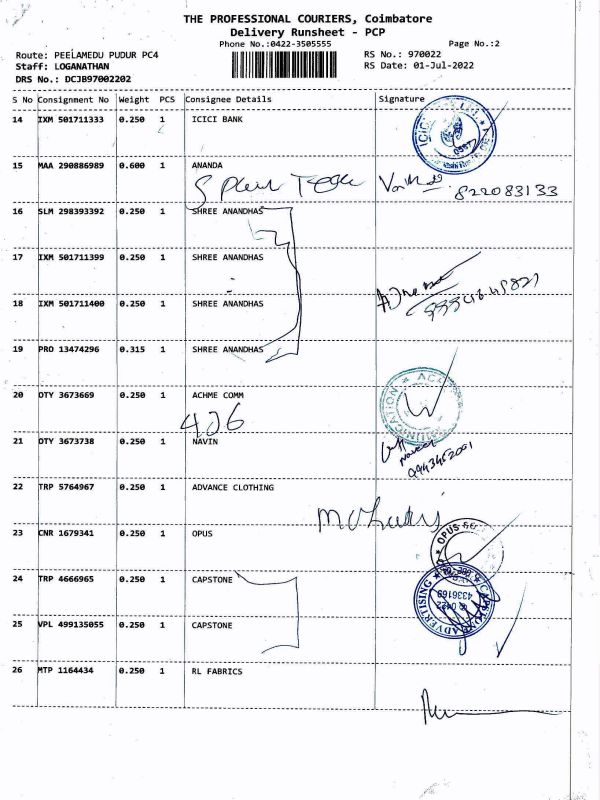 THE PROFESSIONAL COURIERS, Coimbatore
Delivery Runsheet - PCP
Phone No.:0422-3505555
Page No.:2
Route: PEELAMEDU PUDUR PC4
RS No.: 970022
Staff: LOGANATHAN
RS Date: 01-Jul-2022
DRS No.: DCJB97002202
S No Consignment No Weight PCS Consignee Details Signature
14 IXM 501711333 0.250 1 ICICI BANK
ICICI
15 MAA 290886989 0.600 1 ANANDA
822083133
16 SLM 298393392 0.250 1 SHREE ANANDHAS
17 IXM 501711399 0.250 1 SHREE ANANDHAS
18 IXM 501711400 0.250 1 SHREE ANANDHAS
19 PRO 13474296 0.315 1 SHREE ANANDHAS
20 OTY 3673669 0.250 1 ACHME COMM
406
21 OTY 3673738 0.250 1 NAVIN
22 TRP 5764967 0.250 1 ADVANCE CLOTHING
23 CNR 1679341 0.250 1 OPUS
OPUS
24 TRP 4666965 0.250 1 CAPSTONE
ADVERTISING
4336169
25 VPL 499135055 0.250 1 CAPSTONE
26 MTP 1164434 0.250 1 RL FABRICS